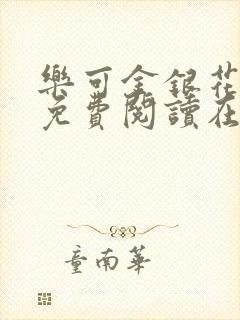 樂可金銀花
免費閱讀在
童南華